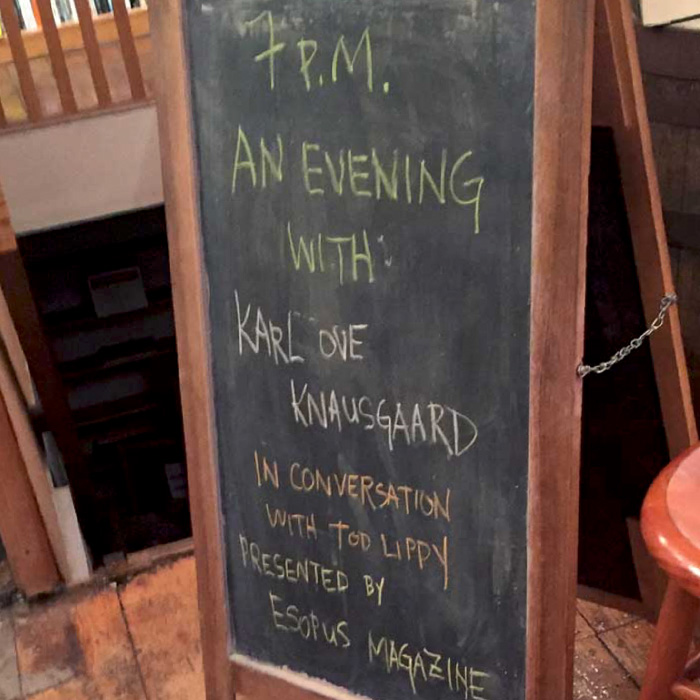 7 P.M.
AN EVENING
WITH
KARL OVE
KNAUSGAARD
IN CONVERSATION
WITH TOD LIPPY
PRESENTED BY
ESOPUS MAGAZINE